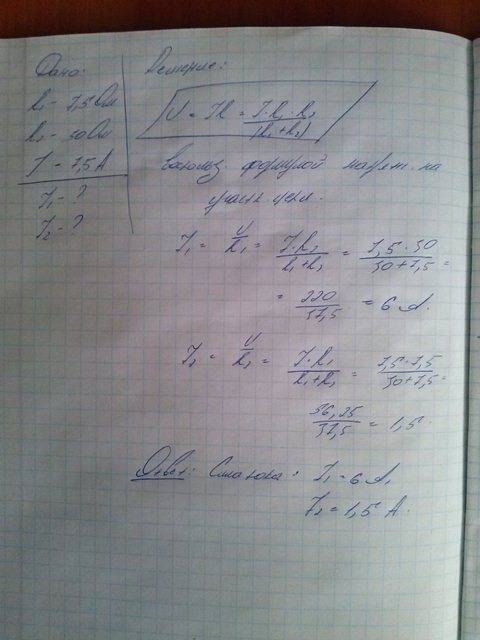 Дано:
R₁ - 7,5 Ом
R₂ - 30 Ом
I - 7,5 А
I₁ - ?
I₂ - ?
Решение:
U = IR = I·R₁·R₂/(R₁+R₂)
Воспольз. формулой напряж. на
участ. цепи.
I₁ = U/R₁ = I·R₂/R₁+R₂ = 7,5·30/30+7,5 =
= 220/37,5 = 6 А.
I₂ = U/R₂ = I·R₁/R₁+R₂ = 7,5·7,5/30+7,5 =
56,25/37,5 = 1,5.
Ответ: Сила тока: I₁ = 6 А,
I₂ = 1,5 А.